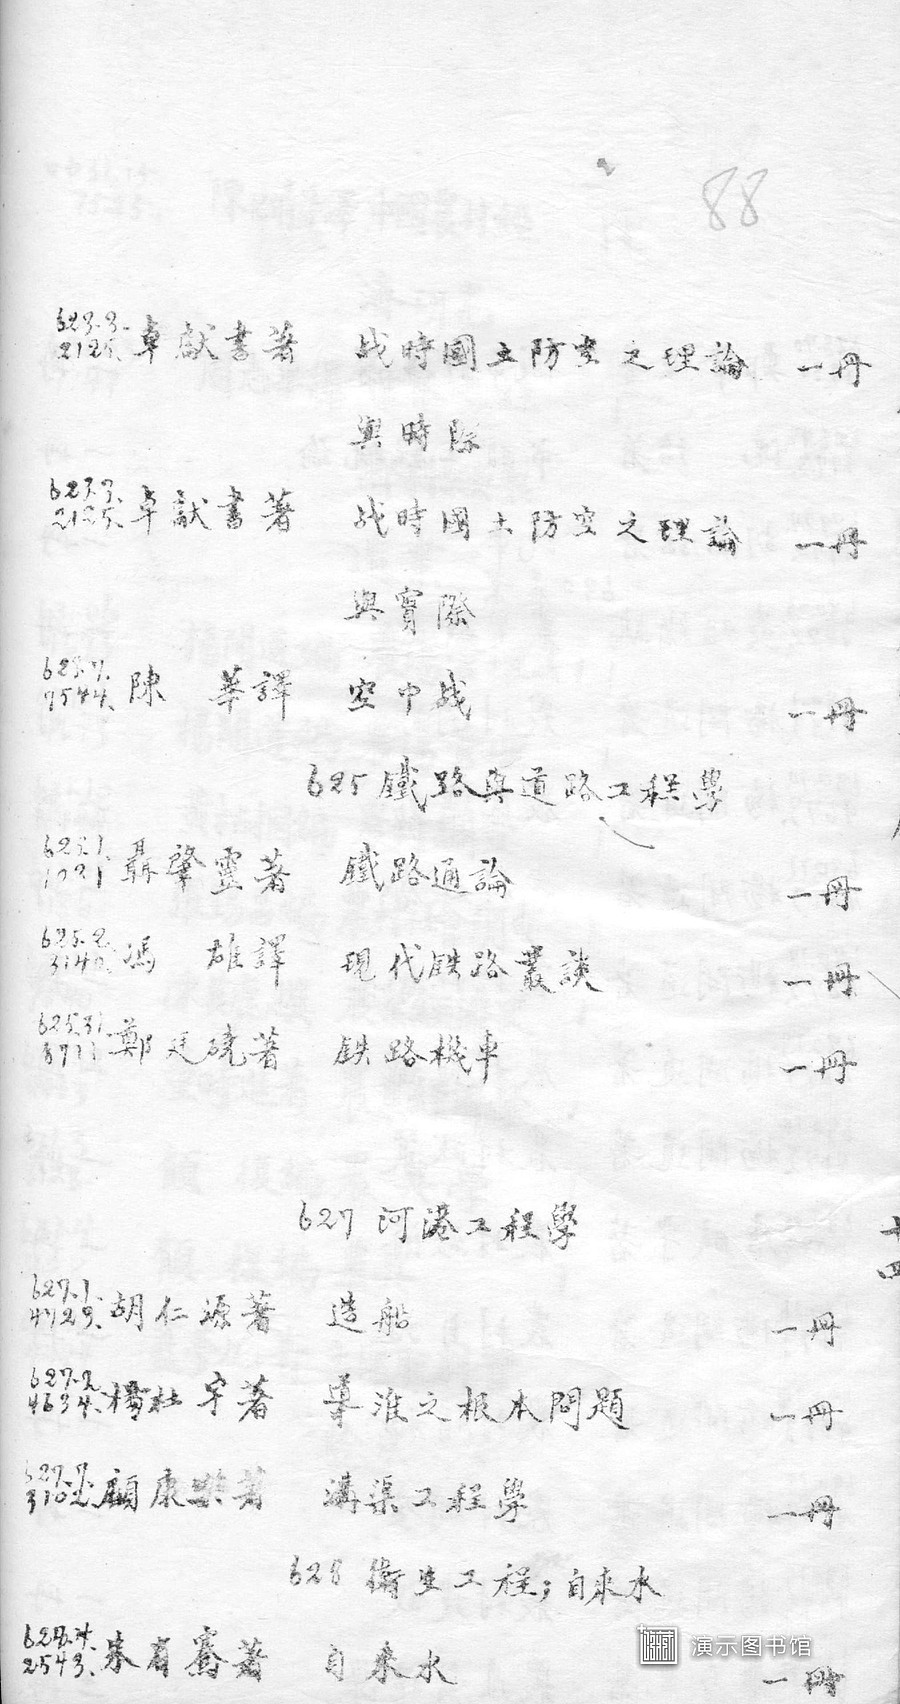 88
623.3.
2125. 卓献書著 战時國土防空之理論 一冊
與時際
623.3.
2125. 卓献書著 战時國土防空之理論 一冊
與實際
623.7.
7544. 陳 華譯 空中战 一冊
625 鐵路與道路工程學
625.1.
1021 聶肇靈著 鐵路通論 一冊
625.2.
3140. 馮 雄譯 現代铁路叢談 一冊
625.31.
鄭廷 著 铁路機車 一冊
627 河港工程學
十四
627.1.
4723. 胡仁源著 造船 一冊
627.2.
4634. 楊杜宇著 導淮之根本問題 一冊
627.7.
310 顧康樂著 溝渠工程學 一冊
628 衛生工程;自來水
628.4.
2543. 朱有骞著 自來水 一冊
演示图书馆